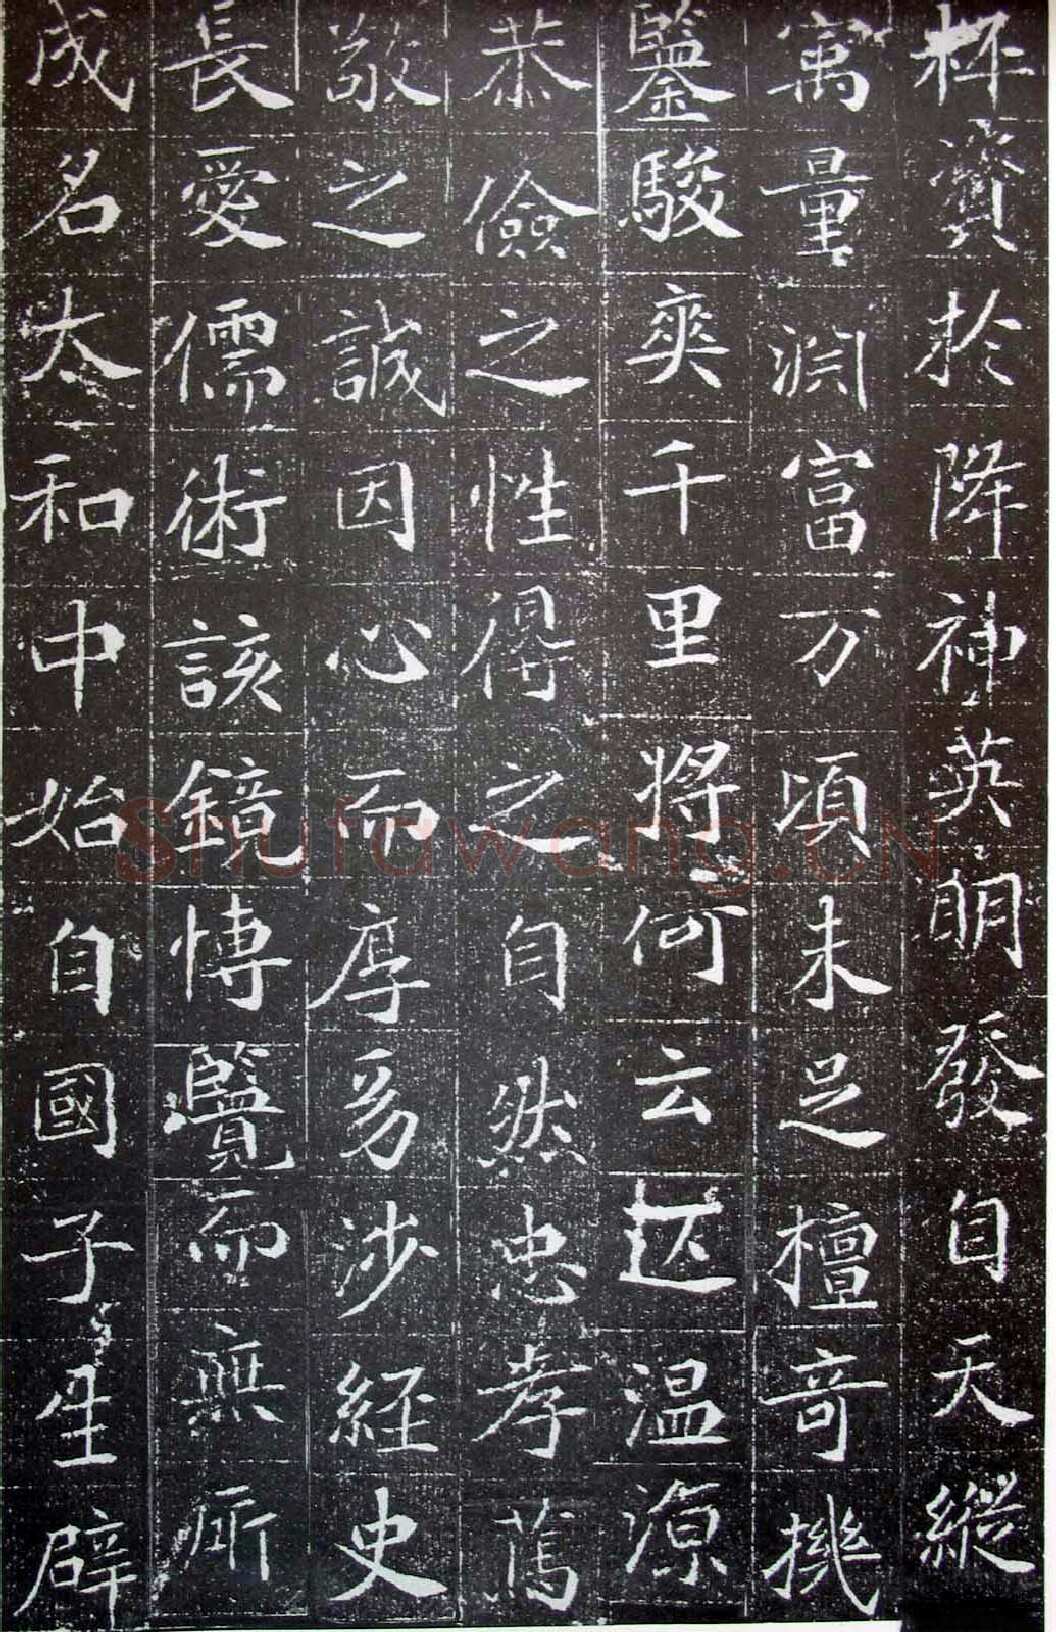 杯資於降神英朗發自天縱
寓量渊富万頃未足檀奇機
鑒駿爽千里將何云迖温源
恭儉之性得之自然忠孝篤
敬之誠因心而厚多涉經史
長愛儒術該鏡博覽而無所
成名太和中始自國子生辟
Shufawang.CN